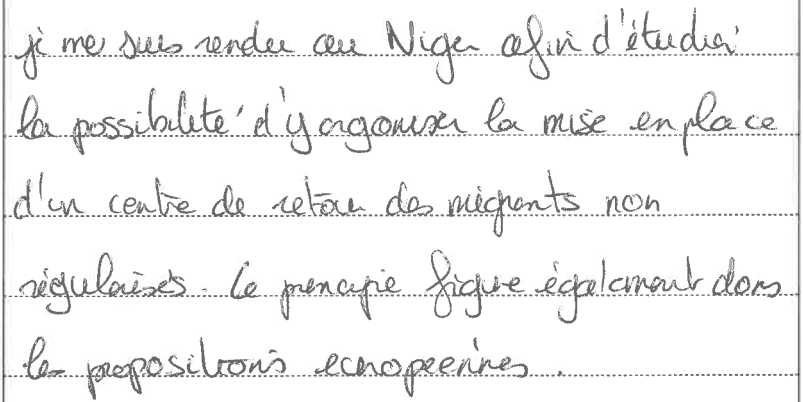 je me suis rendu au Niger afin d'étudier
la possibilité d'y organiser la mise en place
d'un centre de retour des migrants non
régularisés. Ce principe figure également dans
les propositions européennes.